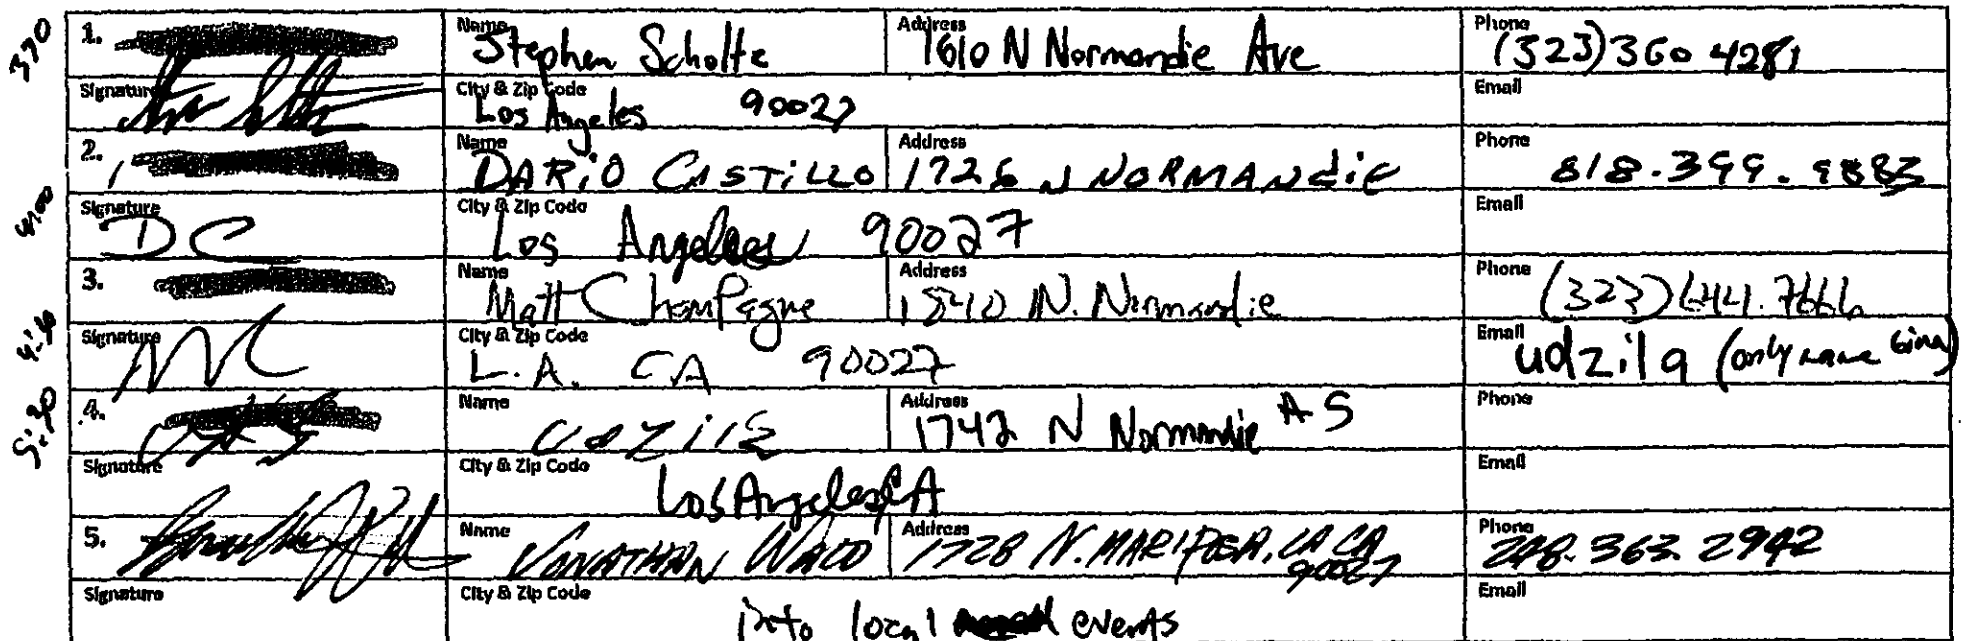 370
1. Name Stephen Scholte Address 1610 N Normandie Ave Phone (323)360 4281
Signature City & Zip Code Los Angeles 90027 Email
2. Name DARiO CASTiLLO Address 1726 N NORMANdiE Phone 818.399.9883
4:00 Signature DC City & Zip Code Los Angeles 90027 Email
3. Name Matt Champagne Address 1840 N. Normandie Phone (323)644.7666
4:40 Signature MC City & Zip Code L.A. CA 90027 Email udzila (only name Gina)
5:20 4. Name udzila Address 1742 N Normandie A5 Phone
Signature City & Zip Code Los Angeles CA Email
5. Name JONATHAN WALD Address 1728 N. MARIPOSA, LA CA 90027 Phone 248.363.2942
Signature City & Zip Code into local events Email